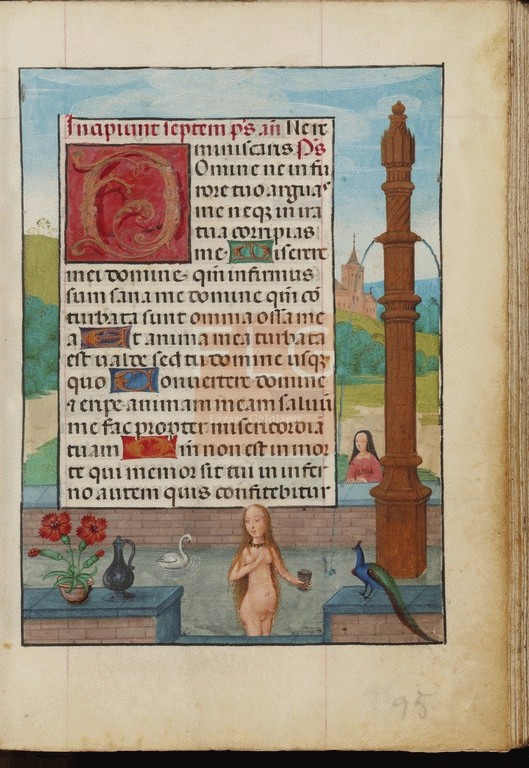 Incipiunt septem p̄s. añ Ne re
miniscaris P̄s
Domine ne in fu
rore tuo arguas
me neq; in ira
tua corripias
me Miserere
mei domine qm̄ infirmus
sum sana me domine qm̄ cō
turbata sunt omnia ossa me
a Et anima mea turbata
est valde sed tu domine usq;
quo Convertere domine
⁊ eripe animam meam saluū
me fac propter misericordiā
tuam Qm̄ non est in mor
te qui memor sit tui in infer
no autem quis confitebitur
95